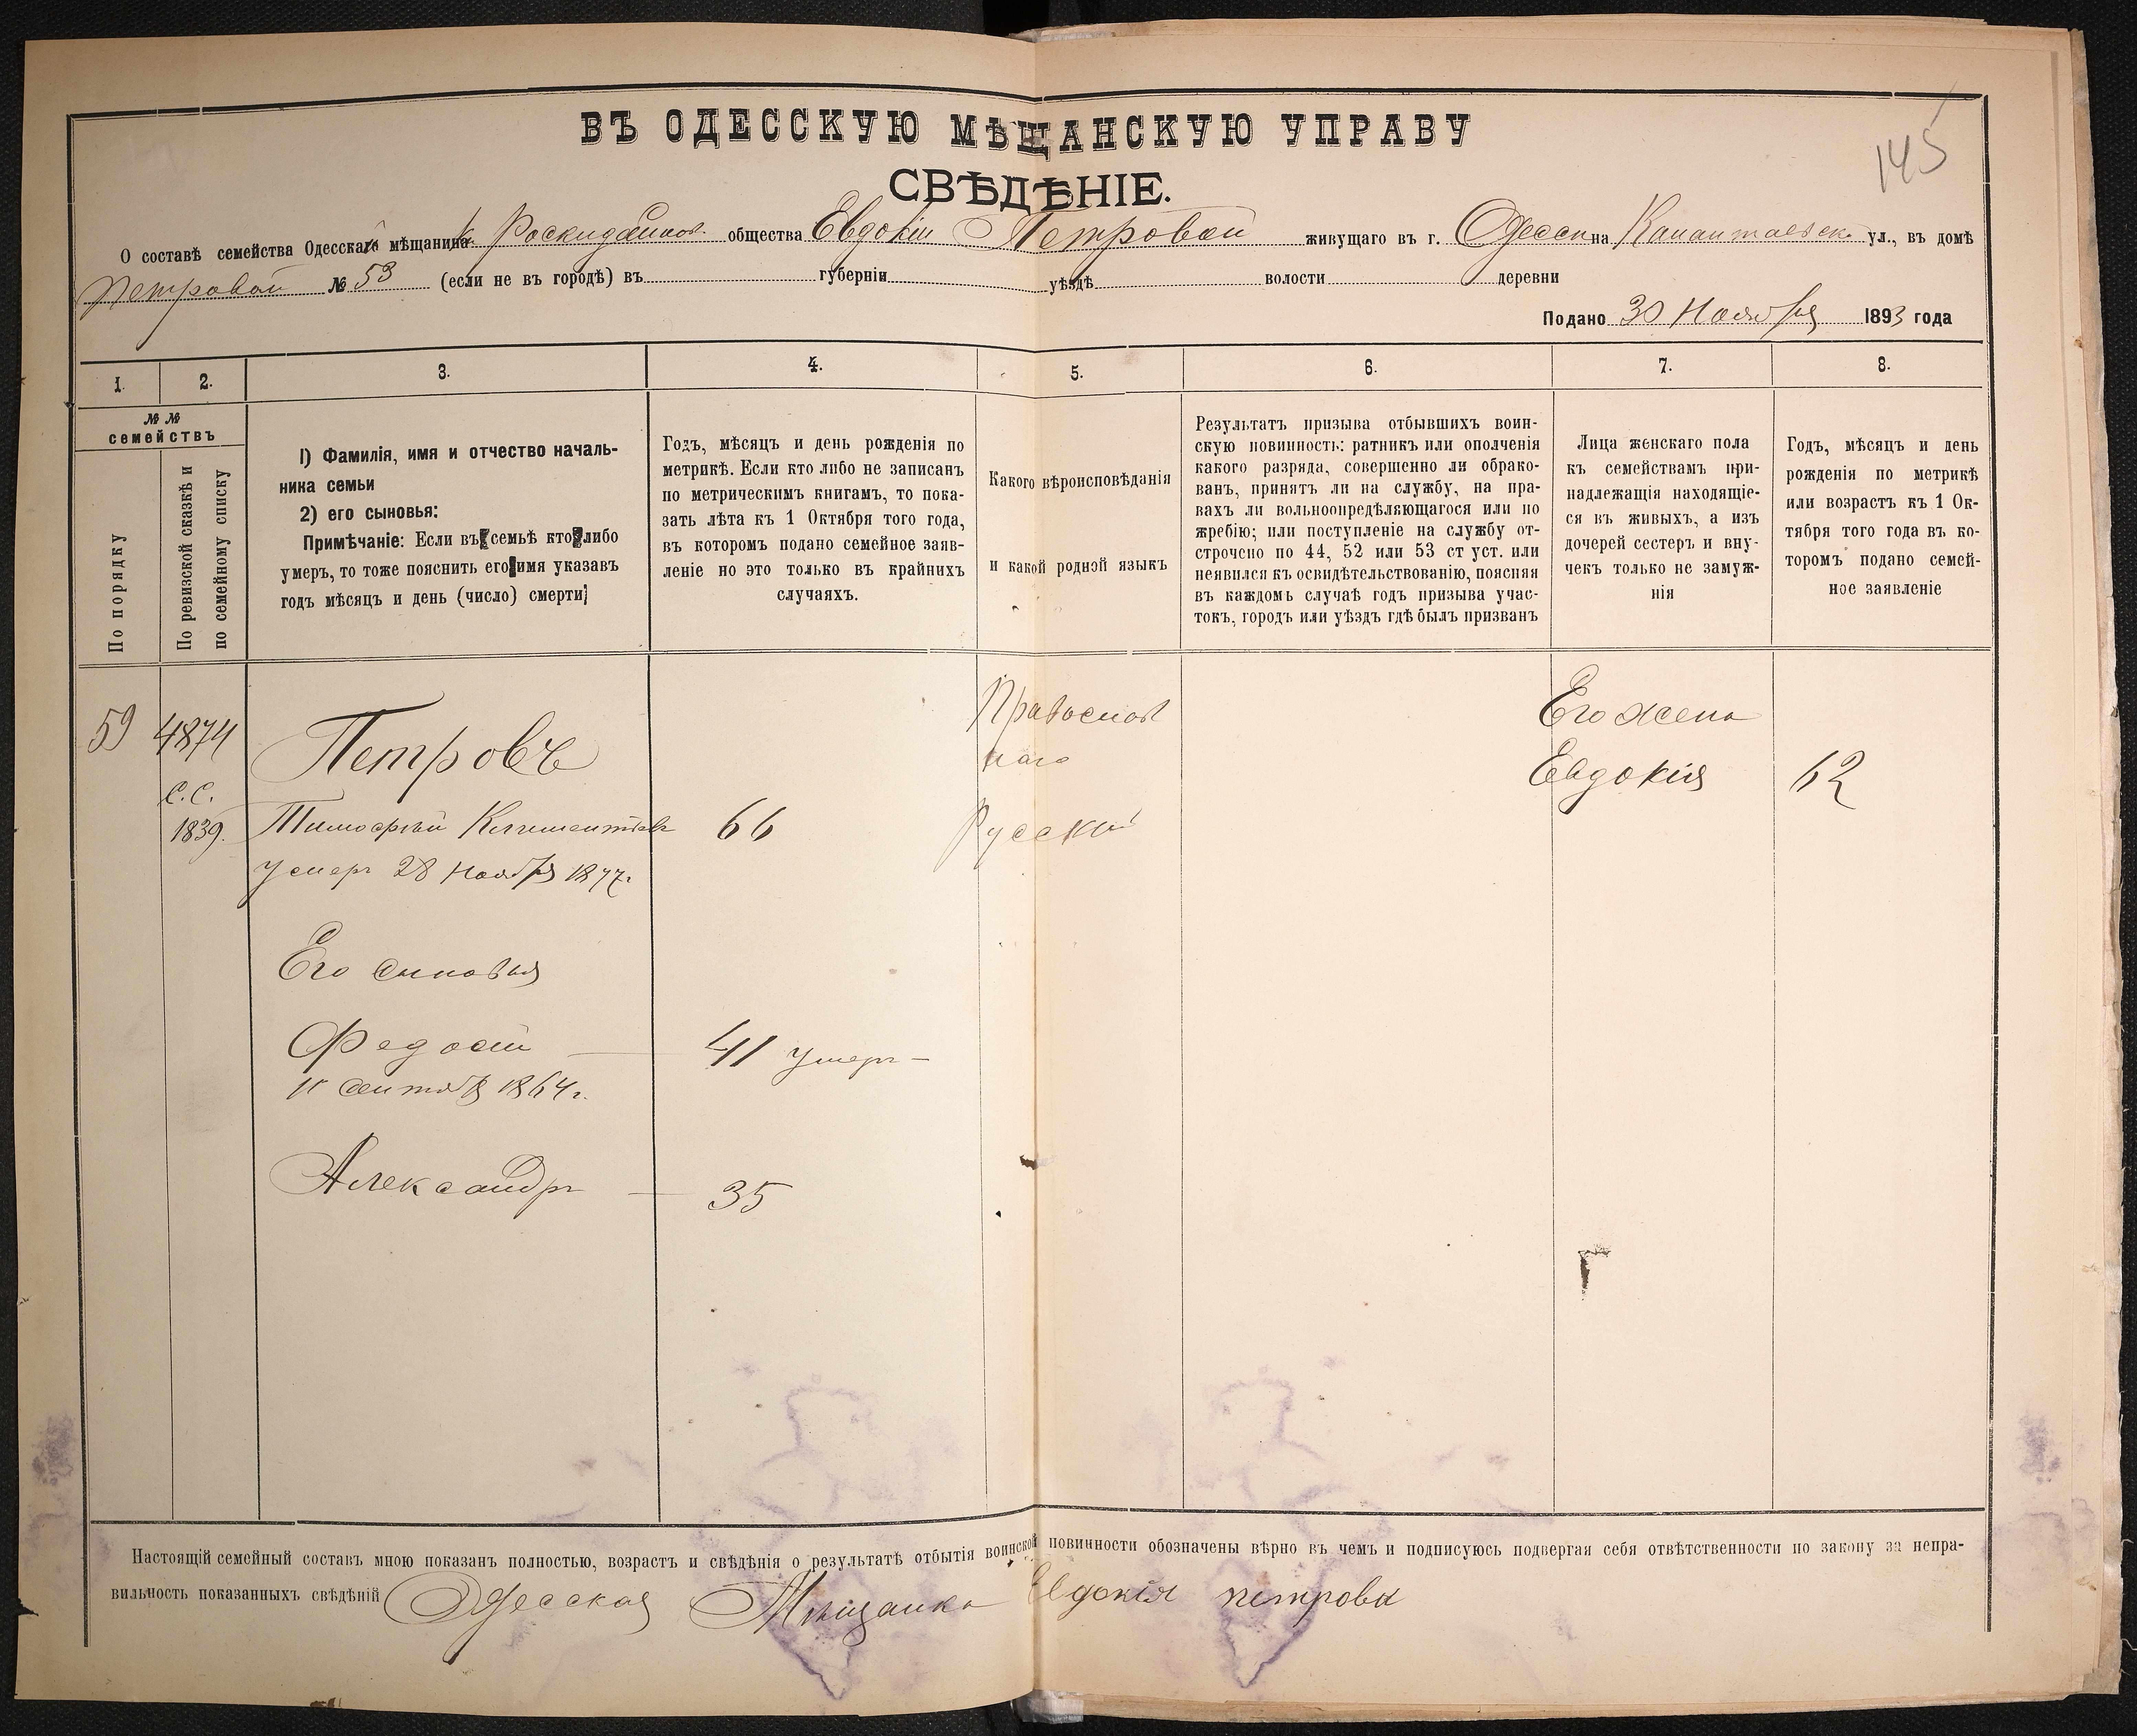 145
ВЪ ОДЕССКУЮ МѢЩАНСКУЮ УПРАВУ
СВѢДѢНІЕ.
О составѣ семейства Одесскаго мѣщанина Роскидайлов. общества Евдокіи Петровой живущаго въ г. Одессѣ на Канатной ул., въ домѣ
Петровой № 53 (если не въ городѣ) въ губерніи уѣздѣ волости деревни
Подано 30 Ноября 1893 года
1. 2. 3. 4. 5. 6. 7. 8.
№ №
семействъ
По порядку
По ревизской сказкѣ и
по семейному списку
1) Фамилія, имя и отчество началь-
ника семьи
2) его сыновья:
Примѣчаніе: Если въ семьѣ кто либо
умеръ, то тоже пояснить его имя указавъ
годъ мѣсяцъ и день (число) смерти
Годъ, мѣсяцъ и день рожденія по
метрикѣ. Если кто либо не записанъ
по метрическимъ книгамъ, то пока-
зать лѣта къ 1 Октября того года,
въ которомъ подано семейное заяв-
леніе но это только въ крайнихъ
случаяхъ.
Какого вѣроисповѣданія
и какой родной языкъ
Результатъ призыва отбывшихъ воин-
скую повинность: ратникъ или ополченія
какого разряда, совершенно ли обрако-
ванъ, принятъ ли на службу, на пра-
вахъ ли вольноопредѣляющагося или по
жребію; или поступленіе на службу от-
строчено по 44, 52 или 53 ст уст. или
неявился къ освидѣтельствованію, поясняя
въ каждомъ случаѣ годъ призыва учас-
токъ, городъ или уѣздъ гдѣ былъ призванъ
Лица женскаго пола
къ семействамъ при-
надлежащія находящіе-
ся въ живыхъ, а изъ
дочерей сестеръ и вну-
чекъ только не замуж-
нія
Годъ, мѣсяцъ и день
рожденія по метрикѣ
или возрастъ къ 1 Ок-
тября того года въ ко-
торомъ подано семей-
ное заявленіе
59 4874
С.С.
1839.
Петровъ
Тимофѣй Климентьевъ 66
умеръ 28 Ноября 1877г.
Православ
наго
Русскій
Его жена
Евдокія 62
Его сыновья
Федосій — 41 умеръ —
11 Сентября 1864г.
Александръ — 35
Настоящій семейный составъ мною показанъ полностью, возрастъ и свѣдѣнія о результатѣ отбытія воинской повинности обозначены вѣрно въ чемъ и подписуюсь подвергая себя отвѣтственности по закону за непра-
вильность показанныхъ свѣдѣній Одесская Мѣщанка Евдокія петрова